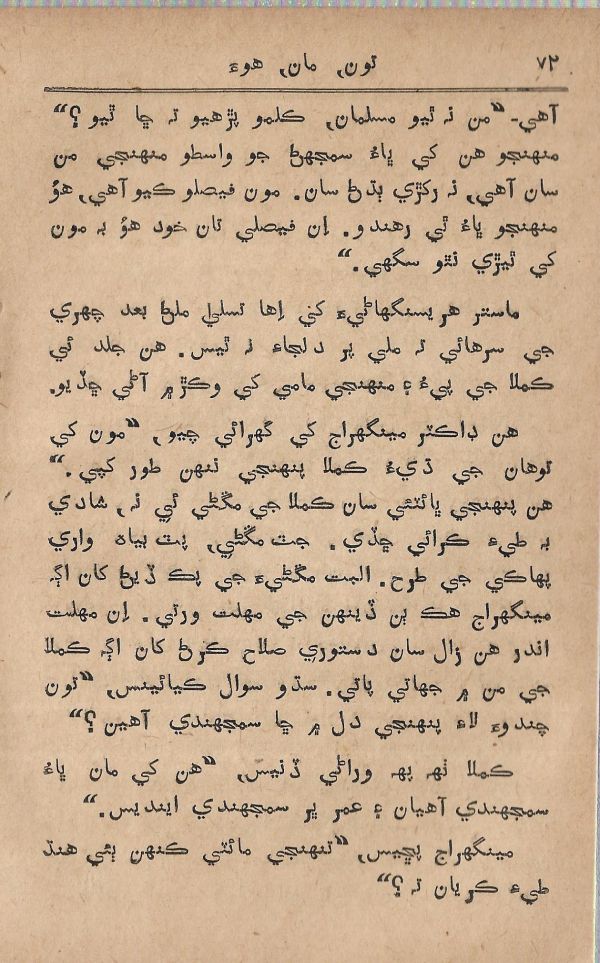 ٧٢
تون، مان، هوءَ
آهي۔ ”من نہ ٿيو مسلمان، ڪلمو پڙهيو تہ ڇا ٿيو؟“
منهنجو هن کي ڀاءُ سمجهڻ جو واسطو منهنجي من
سان آهي، نہ رکڙي ٻڌڻ سان. مون فيصلو ڪيو آهي، هوُ
منهنجو ڀاءُ ئي رهندو. اِن فيصلي تان خود هوُ بہ مون
کي ٿيڙي نٿو سگهي.“
ماستر هريسنگهاڻيءَ کي اِها تسلي ملڻ بعد چهري
جي سرهائي تہ ملي پر دلجاءِ نہ ٿيس. هن جلد ئي
ڪملا جي پيءُ ۽ منهنجي مامي کي وڪڙ ۾ آڻي ڇڏيو.
هن ڊاڪٽر مينگهراج کي گهرائي چيو، ”مون کي
توهان جي ڌيءُ ڪملا پنهنجي ننهن طور کپي.“
هن پنهنجي ڀائٽئي سان ڪملا جي مڱڻي ئي نہ، شادي
بہ طيءَ ڪرائي ڇڏي. جٽ مڱڻي، پٽ بياہ واري
پهاڪي جي طرح. البت مڱڻيءَ جي پڪ ڏيڻ کان اڳہ
مينگهراج هڪ ٻن ڏينهن جي مهلت ورتي. اِن مهلت
اندر هن زال سان دستوري صلاح ڪرڻ کان اڳہ ڪملا
جي من ۾ جهاتي پاتي. سڌو سوال ڪيائينس، ”تون
چندوءَ لاءِ پنهنجي دل ۾ ڇا سمجهندي آهين؟“
ڪملا ٺهہ پهہ وراڻي ڏنيس، ”هن کي مان ڀاءُ
سمجهندي آهيان ۽ عمر ڀر سمجهندي اينديس.“
مينگهراج پڇيس، ”تنهنجي مائٽي ڪنهن ٻئي هنڌ
طيءَ ڪريان نہ؟“